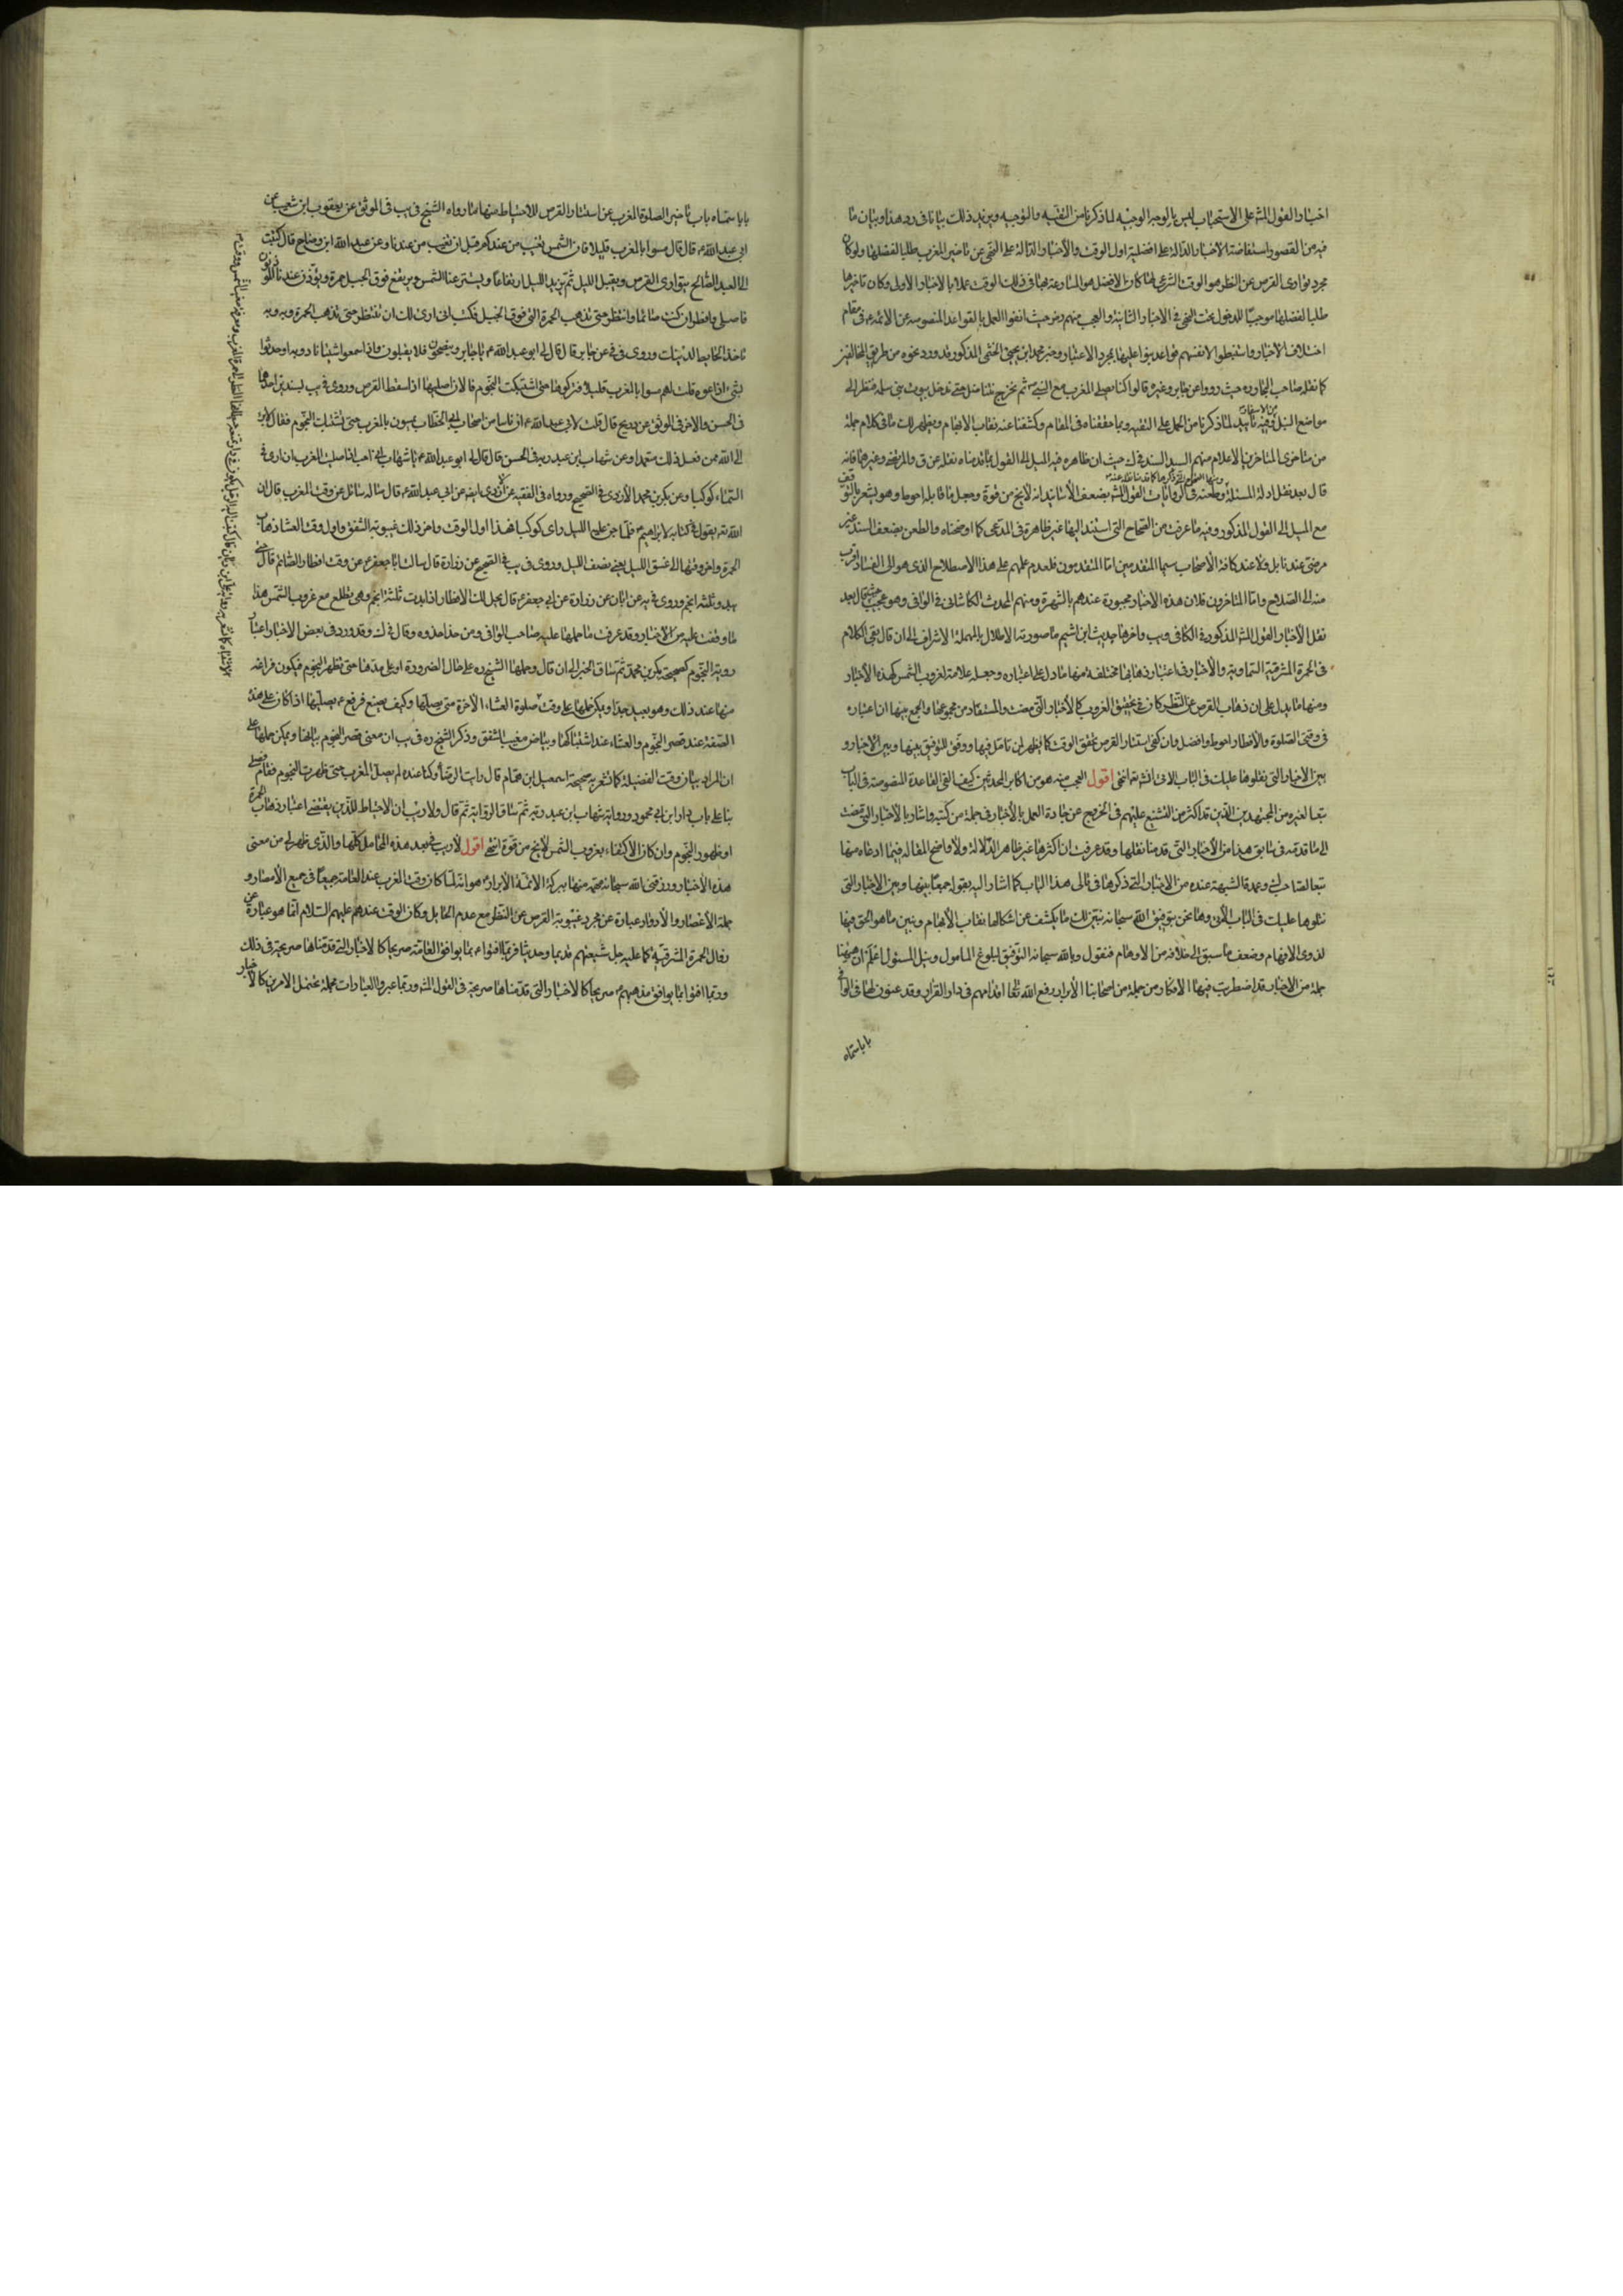 اخبار القول المش على الاستحباب ليس بالوجه الوجيه لما ذكرنا من التقية والتوجيه ويزيد ذلك بيانا في رد هذا وبيان ما
فيه من القصور استفاضة الاخبار الدالة على افضلية اول الوقت والاخبار الدالة على النهي عن تاخير المغرب طلبا لفضلها ولو كان
مجرد توارى القرص عن النظر هو الوقت الشرعي لها كان الافضل هو المسارعة بها في ذلك الوقت عملا بالاخبار الاولى وكان تاخيرها
طلبا لفضلها موجبا للدخول تحت النهي في الاخبار الثانية والعجب منهم رض حيث انفوا العمل بالقواعد المنصوصة عن الائمة ع في مقام
اختلاف الاخبار واستنبطوا لانفسهم قواعد بنوا عليها بمجرد الاعتبار وخبر محمد ابن يحيى الخثعمي المذكور قد ورد نحوه من طريق المخالفين
كما نقله صاحب البحار ره حيث رووا عن جابر وغيره قالوا كنا نصلي المغرب مع النبي ص ثم نخرج نتناضل حتى ندخل بيوت بني سلمة ننظر الى
مواضع النبل وفيه تاييد لما ذكرنا من الحمل على التقية وبما حققناه في المقام وكشفنا عنه نقاب الابهام ويظهر لك ما في كلام جملة
من متاخري المتاخرين الاعلام منهم السيد السند في ك حيث ان ظاهره فيه الميل الى القول بما قدمناه نقله عن ق والمرتضى وغيرهما فانه
قال بعد نقل ادلة المسئلة وطعنه في الروايات القول المش بضعف الاسانيد انه لا يخ من قوة وجعل ما قابله احوط وهو يشعر بالتوقف
مع الميل الى القول المذكور وفيه ما عرفت من الصحاح التي استند اليها غير ظاهرة في المدعى كما اوضحناه والطعن بضعف السند غير
مرضي عندنا بل ولا عند كافة الاصحاب سيما المتقدمين اما المتقدمون فلعدم عملهم على هذا الاصطلاح الذي هو الى الفساد اقرب
منه الى الصلاح واما المتاخرون فلان هذه الاخبار مجبورة عندهم بالشهرة ومنهم المحدث الكاشاني في الوافي وهو عجيب حيث قال بعد
نقل الاخبار القول المش المذكورة في الكافي ويب واخرها حديث ابن اشيم ما صورته الاطلال بالمهملة الاشراف الى ان قال بقي الكلام
في الحمرة المشرقية السماوية والاخبار في اعتبار ذهابها مختلفة منها ما دل على اعتباره وجعله علامة لغروب الشمس كهذه الاخبار
ومنها ما يدل على ان ذهاب القرص عن النظر كاف في تحقيق الغروب كالاخبار التي مضت والمستفاد من مجموعها والجمع بينها ان اعتباره
في وقتي الصلوة والافطار احوط وافضل وان كفى استتار القرص تحقق الوقت كما يظهر لمن تامل فيها ووفق للتوفيق بينها وبين الاخبار و
بين الاخبار التي نتلوها عليك في الباب الاتي انشه تعالى انتهى اقول العجب منه هو من اكابر المحدثين كيف القى القاعدة المنصوصة في الباب
تبعا لغيره من المجتهدين الذين قد اكثر من التشنيع عليهم في الخروج عن جادة العمل بالاخبار في جملة من كتبه واشار بالاخبار التي مضت
الى ما قدمه في سابق هذا من الاخبار التي قدمنا نقلها وقد عرفت ان اكثرها غير ظاهر الدلالة ولا واضح المقالة فيما ادعاه منها
تبعا لصاحب ك وعمدة الشبهة عنده من الاخبار التي ذكرها في تالي هذا الباب كما اشار اليه بقوله جمعا بينها وبين الاخبار التي
نتلوها عليك في الباب الاتي وها نحن بتوفيق الله سبحانه نبين لك ما يكشف عن اشكالها نقاب الابهام ونبين ما هو الحق فيها
لذوي الافهام وضعف ما سبق الى خلافه من الاوهام فنقول وبالله سبحانه التوفيق لبلوغ المامول ونيل المسئول اعلم ان هيهنا
جملة من الاخبار قد اضطربت فيها الافكار من جملة من اصحابنا الابرار رفع الله تعالى اقدامهم في دار القرار وقد عنون لها في الوافي
بابا سماه
بابا سماه باب تاخير الصلوة المغرب عن استتار القرص للاحتياط منها ما رواه الشيخ في يب في الموثق عن يعقوب ابن شعيب عن
ابي عبد الله ع قال قال مسوا بالمغرب قليلا فان الشمس تغيب من عندكم قبل ان تغيب من عندنا وعن عبد الله ابن وضاح قال كتبت
الى العبد الصالح يتوارى القرص ويقبل الليل ثم يزيد الليل ارتفاعا ويستتر عنا الشمس ويرتفع فوق الجبل حمرة ويؤذن عندنا المؤذنون
فاصلي وافطر ان كنت صائما او انتظر حتى تذهب الحمرة التي فوق الجبل فكتب الي ارى لك ان تنتظر حتى تذهب الحمرة
تاخذ الحايطة لدينك وروى في عن جابر قال قال لي ابو عبد الله ع يا جابر
بشيء اذاعوه قلت لهم مسوا بالمغرب قليلا فتركوها حتى اشتبكت النجوم فانا الان اصليها اذا سقط القرص وروى في يب بسندين احدهما
في الحسن والاخر في الموثق عن ذريح قال قلت لابي عبد الله ع ان ناسا من اصحاب ابي الخطاب يمسون بالمغرب حتى تشتبك النجوم فقال ابرء
الى الله ممن فعل ذلك متعمدا وعن شهاب ابن عبد ربه في الحسن قال قال لي ابو عبد الله ع يا شهاب اني احب اذا صليت المغرب ان ارى في
السماء كوكبا وعن بكر بن محمد الازدي في الصحيح ورواه في الفقيه عن ابي عبد الله ع قال ساله سائل عن وقت المغرب قال ان
الله تع يقول في كتابه لابراهيم فلما جن عليه الليل راى كوكبا فهذا اول الوقت واخر ذلك غيبوبة الشفق واول وقت العشاء ذهاب
الحمرة واخر وقتها الى غسق الليل يعني نصف الليل وروى في يب في الصحيح عن زرارة قال سالت ابا جعفر ع عن وقت افطار الصائم قال حتى
يبدو ثلثة انجم وروى في يه عن ابان عن زرارة عن ابي جعفر ع قال يحل لك الافطار اذا بدت ثلثة انجم وهي تطلع مع غروب الشمس هذا
ما وقفت عليه من الاخبار وقد عرفت ما حملها عليه صاحب الوافي ومن حذا حذوه وقال في ك وقد ورد في بعض الاخبار اعتبار
روية النجوم كصحيحة بكر بن محمد ثم ساق الخبر الى ان قال وحملها الشيخ ره على حال الضرورة او على مدها حتى تظهر النجوم فيكون فراغه
منها عند ذلك وهو بعيد جدا ويمكن حملها على وقت صلوة العشاء الاخرة
الصفة عند قصر النجوم والعشاء عند اشتباكها وبياض مغيب الشفق وذكر الشيخ ره في يب ان معنى قصر النجوم بيانها ويمكن حملها على
ان المراد بيان وقت الفضيلة كما تشعر به صحيحة اسمعيل ابن همام قال رايت الرضا ع وكنا عنده لم يصل المغرب حتى ظهرت النجوم فقام فصلى
بنا على باب دار ابن ابي محمود ورواية شهاب ابن عبد ربه ثم ساق الرواية ثم قال ولا ريب ان الاحتياط للدين يقتضي اعتبار ذهاب الحمرة
او ظهور النجوم وان كان الاكتفاء بغروب الشمس لا يخ من قوة انتهى اقول لا ريب في بعد هذه المحامل كلها والذي ظهر لي من معنى
هذه الاخبار ورزقني الله سبحانه فهمه منها ببركة الائمة الابرار ع هو انه لما كان وقت المغرب عند العامة جميعا في جميع الامصار و
جملة الاعصار والادوار عبارة عن مجرد غيبوبة القرص عن النظر مع عدم الحايل وكان الوقت عندهم عليهم السلام انما هو عبارة عن
زوال الحمرة المشرقية كما عليه جل شيعتهم قديما وحديثا فربما افتوا ع بما يوافق العامة صريحا كالاخبار التي قدمناها صريحة في ذلك
وربما افتوا بما يوافق مذهبهم ع صريحا كالاخبار التي قدمناها صريحة في القول المش وربما عبروا بالعبارات مجملة تحتمل الامرين كالاخبار